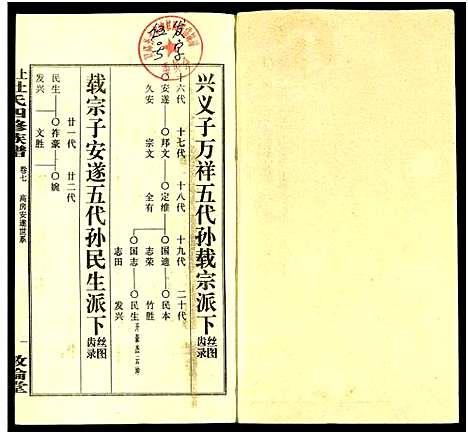 发字
兴义子万祥五代孙载宗派下 丝图齿录
十六代 十七代 十八代 十九代 二十代
安遂 邦文 定维 国迪 民本
久安 宗文 全有 志荣 竹胜
国志 民生
志田 发兴
载宗子安遂五代孙民生派下 丝图齿录
廿一代 廿二代
民生 祚豪 婉
发兴 文胜
杜氏四修族谱 卷七 高房安遂世系 一 敦伦堂